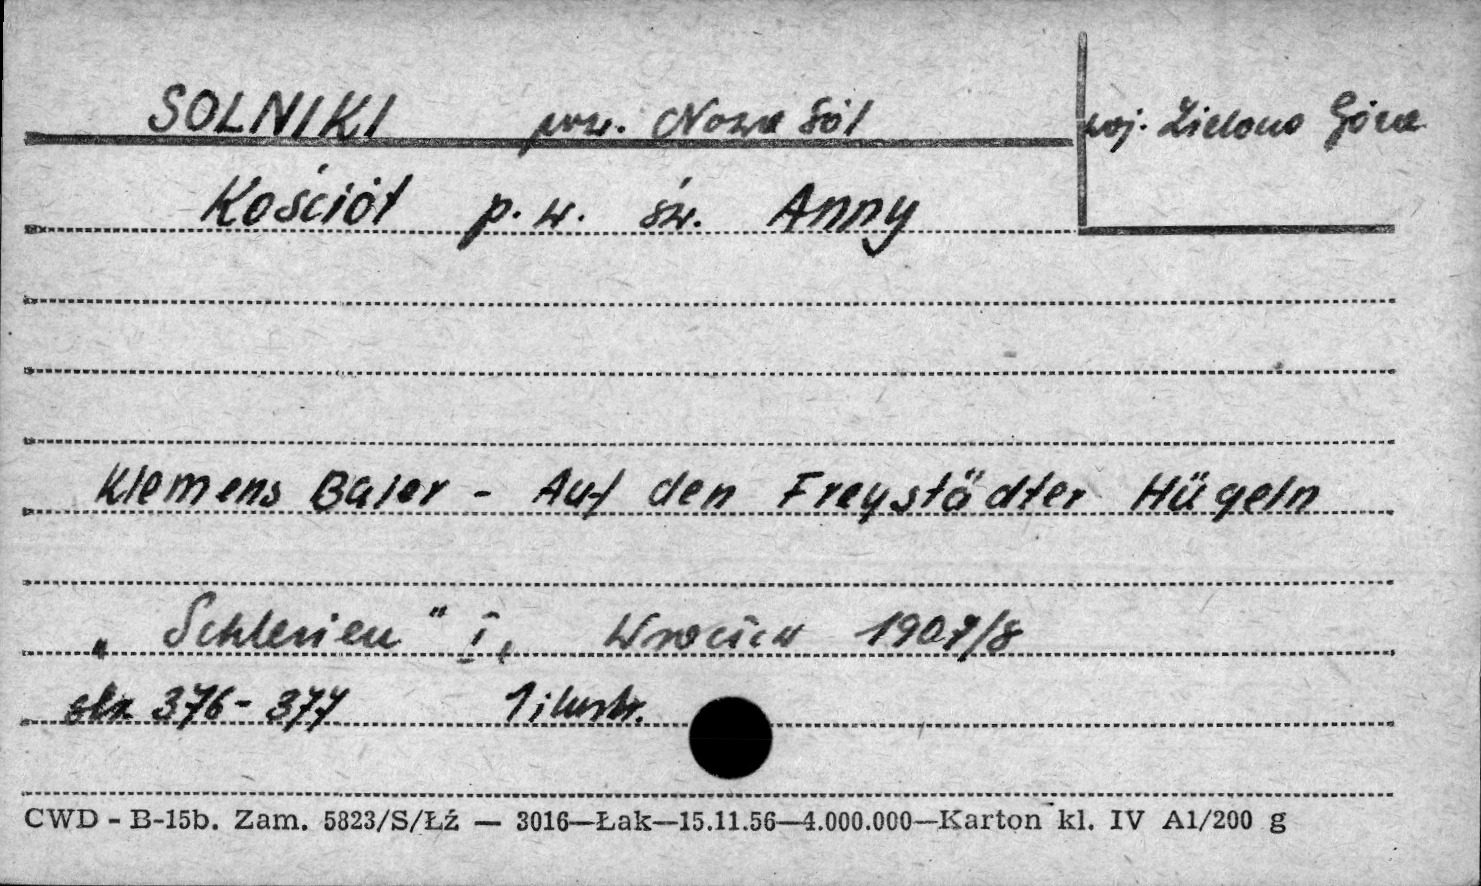 SOLNIKI pow. Nowa Sól woj. Zielona Góra
Kościół p. w. św. Anny
Klemens Baier - Auf den Freystädter Hügeln
„Schlesien" I, Wrocław 1907/8
str. 376-377 1 ilustr.
CWD - B-15b. Zam. 5823/S/Łź — 3016—Łak—15.11.56—4.000.000—Karton kl. IV A1/200 g